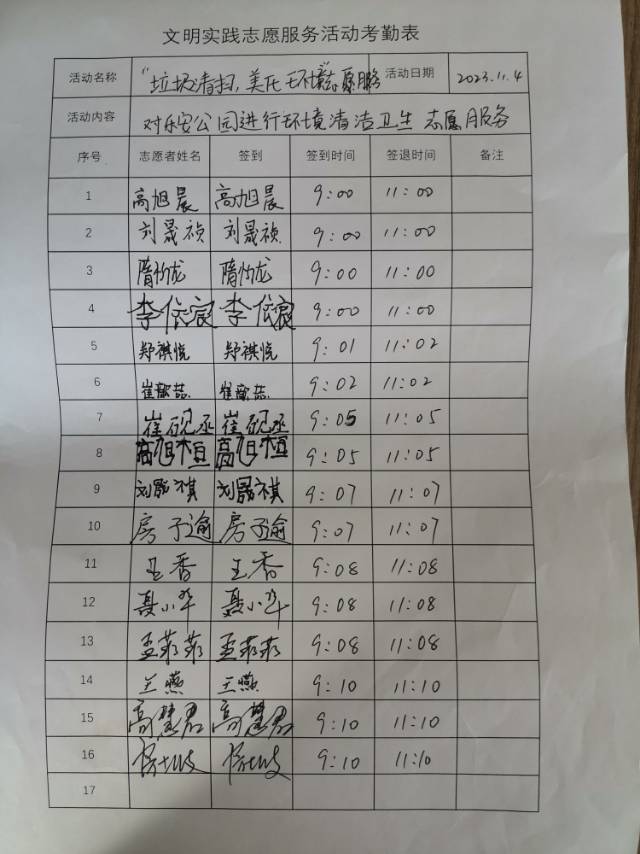 文明实践志愿服务活动考勤表
活动名称 "垃圾清扫,美化环境"志愿服务 活动日期 2023.11.4
活动内容 对乐安公园进行环境清洁卫生志愿服务
序号 志愿者姓名 签到 签到时间 签退时间 备注
1 高旭晨 高旭晨 9:00 11:00
2 刘晟祯 刘晟祯 9:00 11:00
3 隋灼龙 隋灼龙 9:00 11:00
4 李依宸 李依宸 9:00 11:00
5 郑祺悦 郑祺悦 9:01 11:02
6 崔歆喆 崔歆喆 9:02 11:02
7 崔砚丞 崔砚丞 9:05 11:05
8 高旭桓 高旭桓 9:05 11:05
9 刘晟祺 刘晟祺 9:07 11:07
10 房子逾 房子逾 9:07 11:07
11 王香 王香 9:08 11:08
12 聂小华 聂小华 9:08 11:08
13 孟菲菲 孟菲菲 9:08 11:08
14 王燕 王燕 9:10 11:10
15 高慧君 高慧君 9:10 11:10
16 9:10 11:10
17